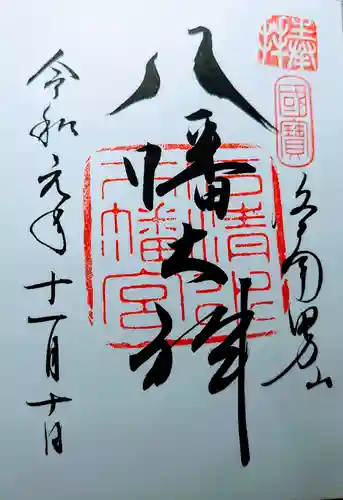 奉拝
國寶
男山
八幡大神
石清水
八幡宮
令和元年十一月十日